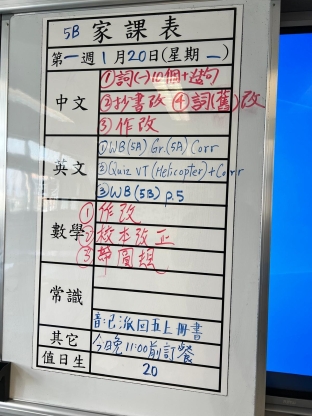 5B 家課表
第一週 1月20日(星期一)
中文
①詞(一)10個+造句
②抄書改 ④詞(舊)改
③作改
英文
①WB(5A) Gr.(5A) Corr
②Quiz VT (Helicopter) + Corr
③WB (5B) p.5
數學
①作改
②校本改正
③
常識
音:已派回五上冊書
其它
今晚11:00前訂餐
值日生
20